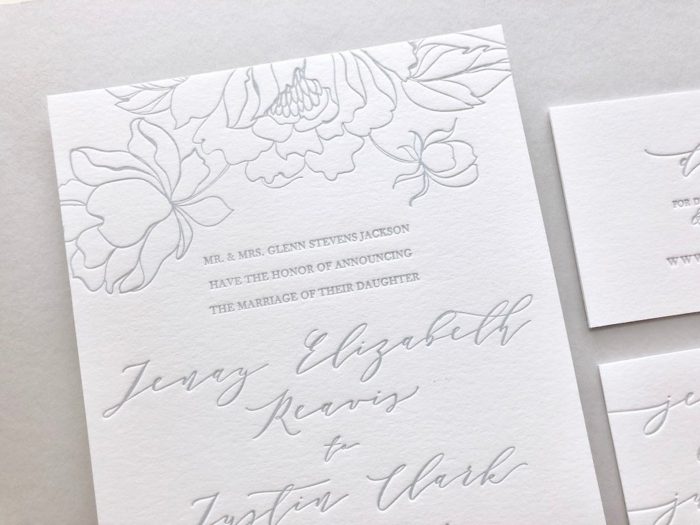 MR. & MRS. GLENN STEVENS JACKSON
HAVE THE HONOR OF ANNOUNCING
THE MARRIAGE OF THEIR DAUGHTER
Jenay Elizabeth
Reavis
to
Justin Clark
FOR D
WWW
je
ju